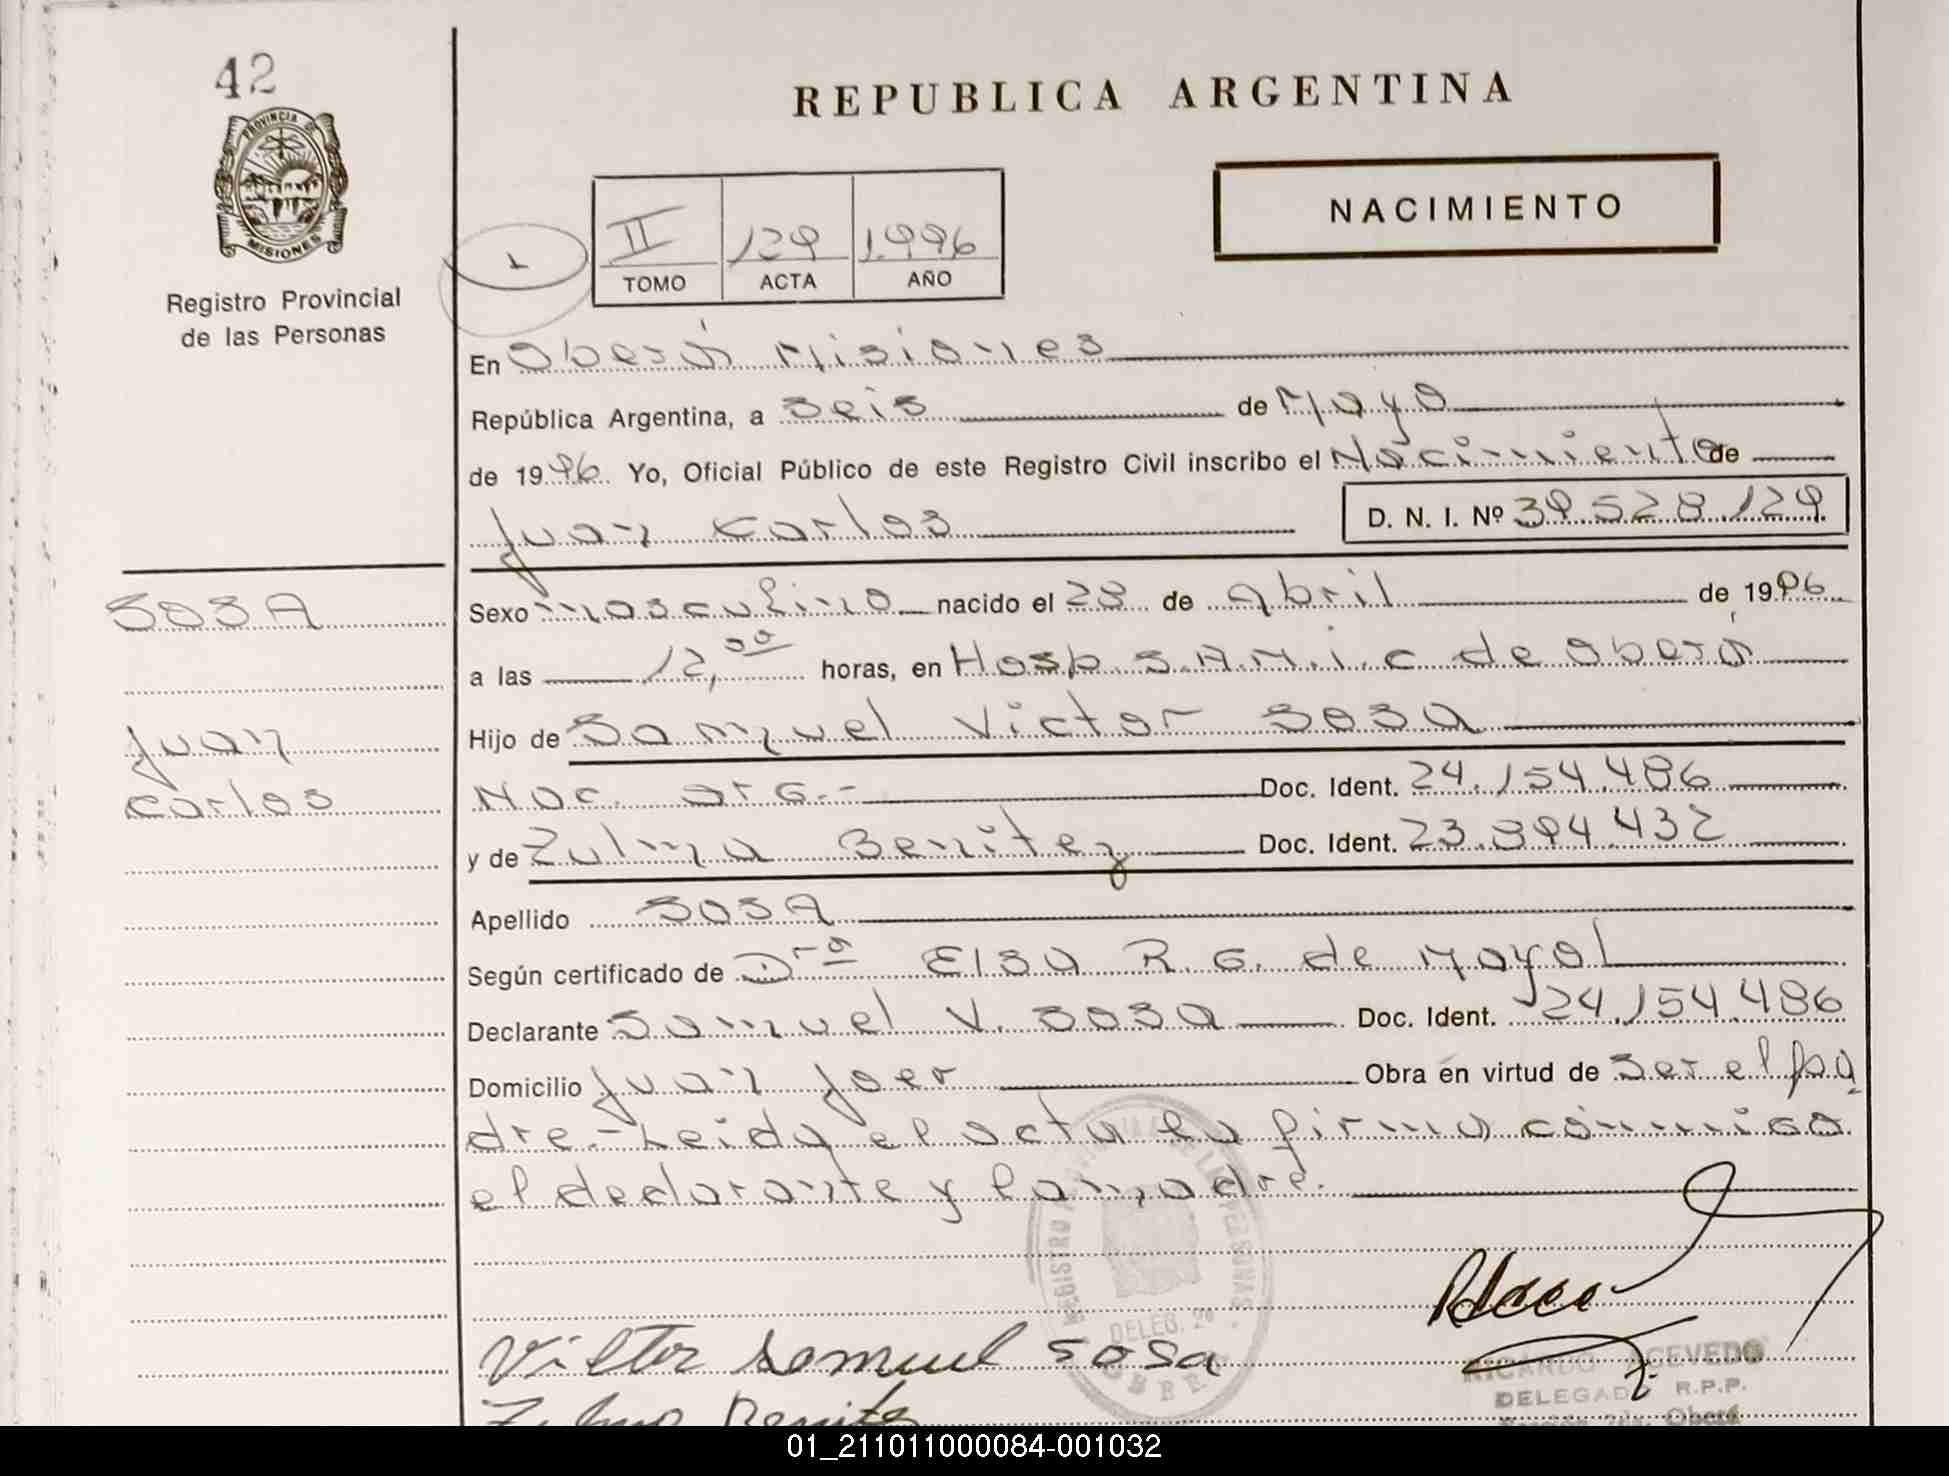 42
REPUBLICA ARGENTINA
PROVINCIA DE
MISIONES
Registro Provincial
de las Personas
NACIMIENTO
II 129 1.996
TOMO ACTA AÑO
En Oberá Misiones
República Argentina, a seis de Mayo
de 1996. Yo, Oficial Público de este Registro Civil inscribo el Nacimiento de
Juan Carlos D. N. I. Nº 39.528.129
SOSA
Sexo masculino nacido el 28 de Abril de 1996
a las 12,00 horas, en Hosp S.A.M.i.c de Oberá
Juan
Hijo de Samuel Victor SOSA
Carlos
Nac. arG.- Doc. Ident. 24.154.486
y de Zulma Benitez Doc. Ident. 23.894.432
Apellido SOSA
Según certificado de Dra Elsa R. G. de Mayol
Declarante Samuel V. SOSA Doc. Ident. 24.154.486
Domicilio Juan Obra en virtud de ser el pa
dre.- Leida el acta la firma conmigo
el declarante y la madre.
REGISTRO DE LAS PERSONAS
DELEG. 2ª
OBERA
Victor Samuel Sosa
RICARDO ACEVEDO
DELEGADO R.P.P.
Sección 2da. Oberá
Zulma Benitez
01_211011000084-001032